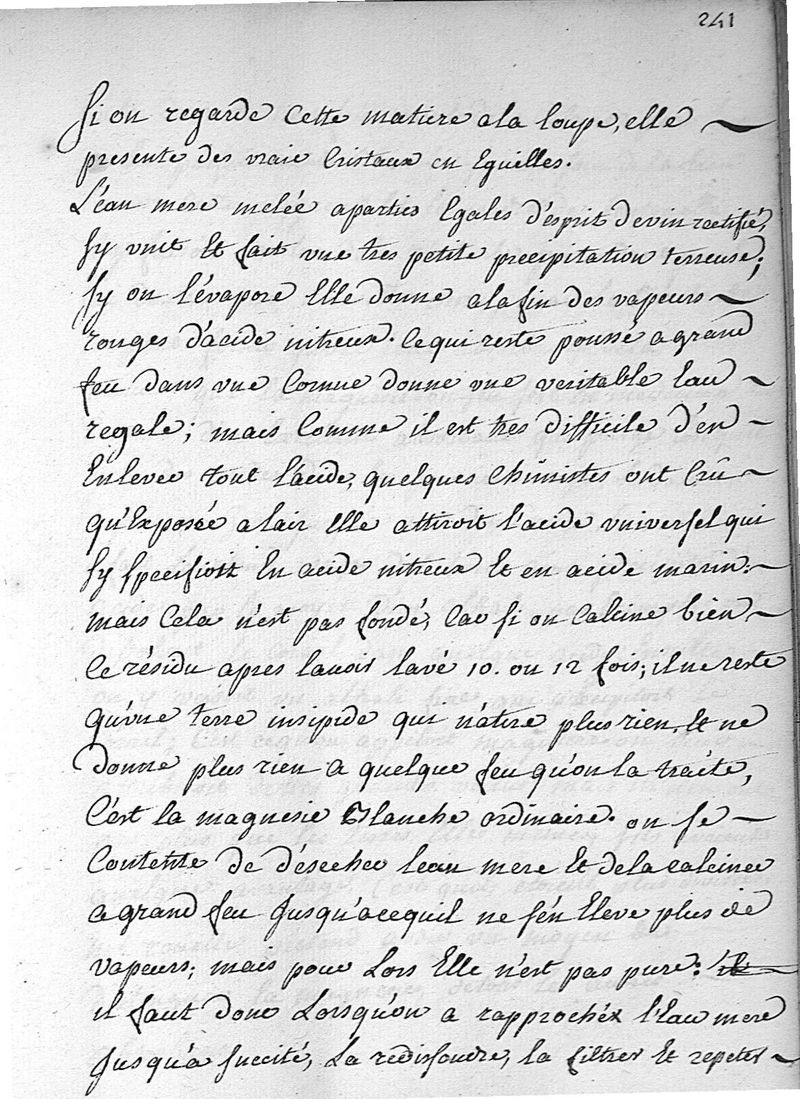 241
Si on regarde Cette matiere ala loupe, elle
presente des vraie Cristaux en Eguilles.
L'éau mere melée aparties Egales d'ésprit devin rectifié,
sy vnit Et fait vne tres petite precipitation terreuse;
sy on l'évapore Elle donne ala fin des vapeurs
rouges d'acide nitreux. Ce qui reste poussé a grand
feu dans vne Cornue donne vne veritable Eau
regale; mais Comme il est tres difficile d'en
Enlever tout l'acide, quelques Chimistes ont Crû
qu'Exposée a lair Elle attiroit l'acide vniversel qui
sy specifioit En acide nitreux Et en acide marin.
mais Cela n'est pas fondé, Car si on Calcine bien
Le résidu apres lavoir lavé 10. ou 12 fois; il ne reste
qu'vne terre insipide qui n'atire plus rien, Et ne
donne plus rien a quelque feu qu'on la traite,
C'est la magnesie Blanche ordinaire. on se
Contente de désecher leau mere Et dela calciner
a grand feu Jusqu'acequil ne s'én Eleve plus de
vapeurs; mais pour Lors Elle n'est pas pure:
il faut donc Lorsqu'on a rapproché l'Eau mere
Jusqu'a siccité, La redissoudre, la filtrer Et repeter